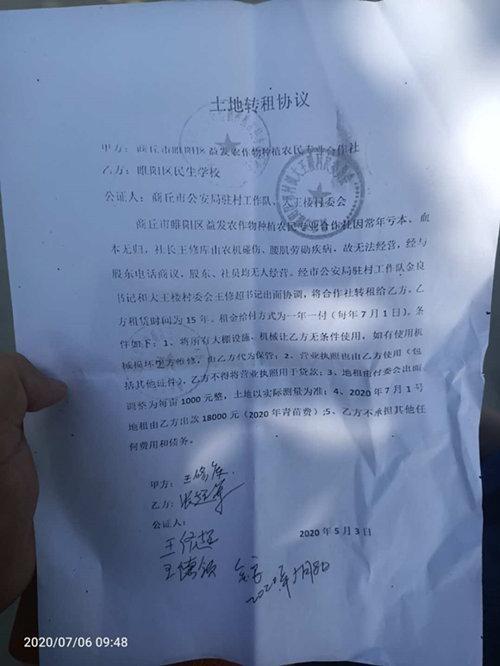 土地转租协议
甲方：商丘市睢阳区益发农作物种植农民专业合作社
乙方：睢阳区民生学校
公证人：商丘市公安局驻村工作队、大王楼村委会
商丘市睢阳区益发农作物种植农民专业合作社因常年亏本，血
本无归，社长王修库由农机碰伤、腰肌劳动疾病，故无法经营，经与
股东电话商议，股东、社员均无人经营。经市公安局驻村工作队金良
书记和大王楼村委会王修超书记出面协调，将合作社转租给乙方。乙
方租赁时间为 15 年。租金给付方式为一年一付（每年 7 月 1 日）。条
件如下：1、将所有大棚设施、机械让乙方无条件使用，如有使用机
械损坏乙方维修，由乙方代为保管；2、营业执照也由乙方使用（包
括其他证件），乙方不得将营业执照用于贷款；3、地租由村委会出面
调整为每亩 1000 元整，土地以实际测量为准；4、2020 年 7 月 1 号
地租由乙方出款 18000 元（2020 年青苗费）;5、乙方不承担其他任
何费用和债务。
甲方：王修库
乙方：
公证人：
2020 年 5 月 3 日
王修超
2020年5月8日
2020/07/06 09:48